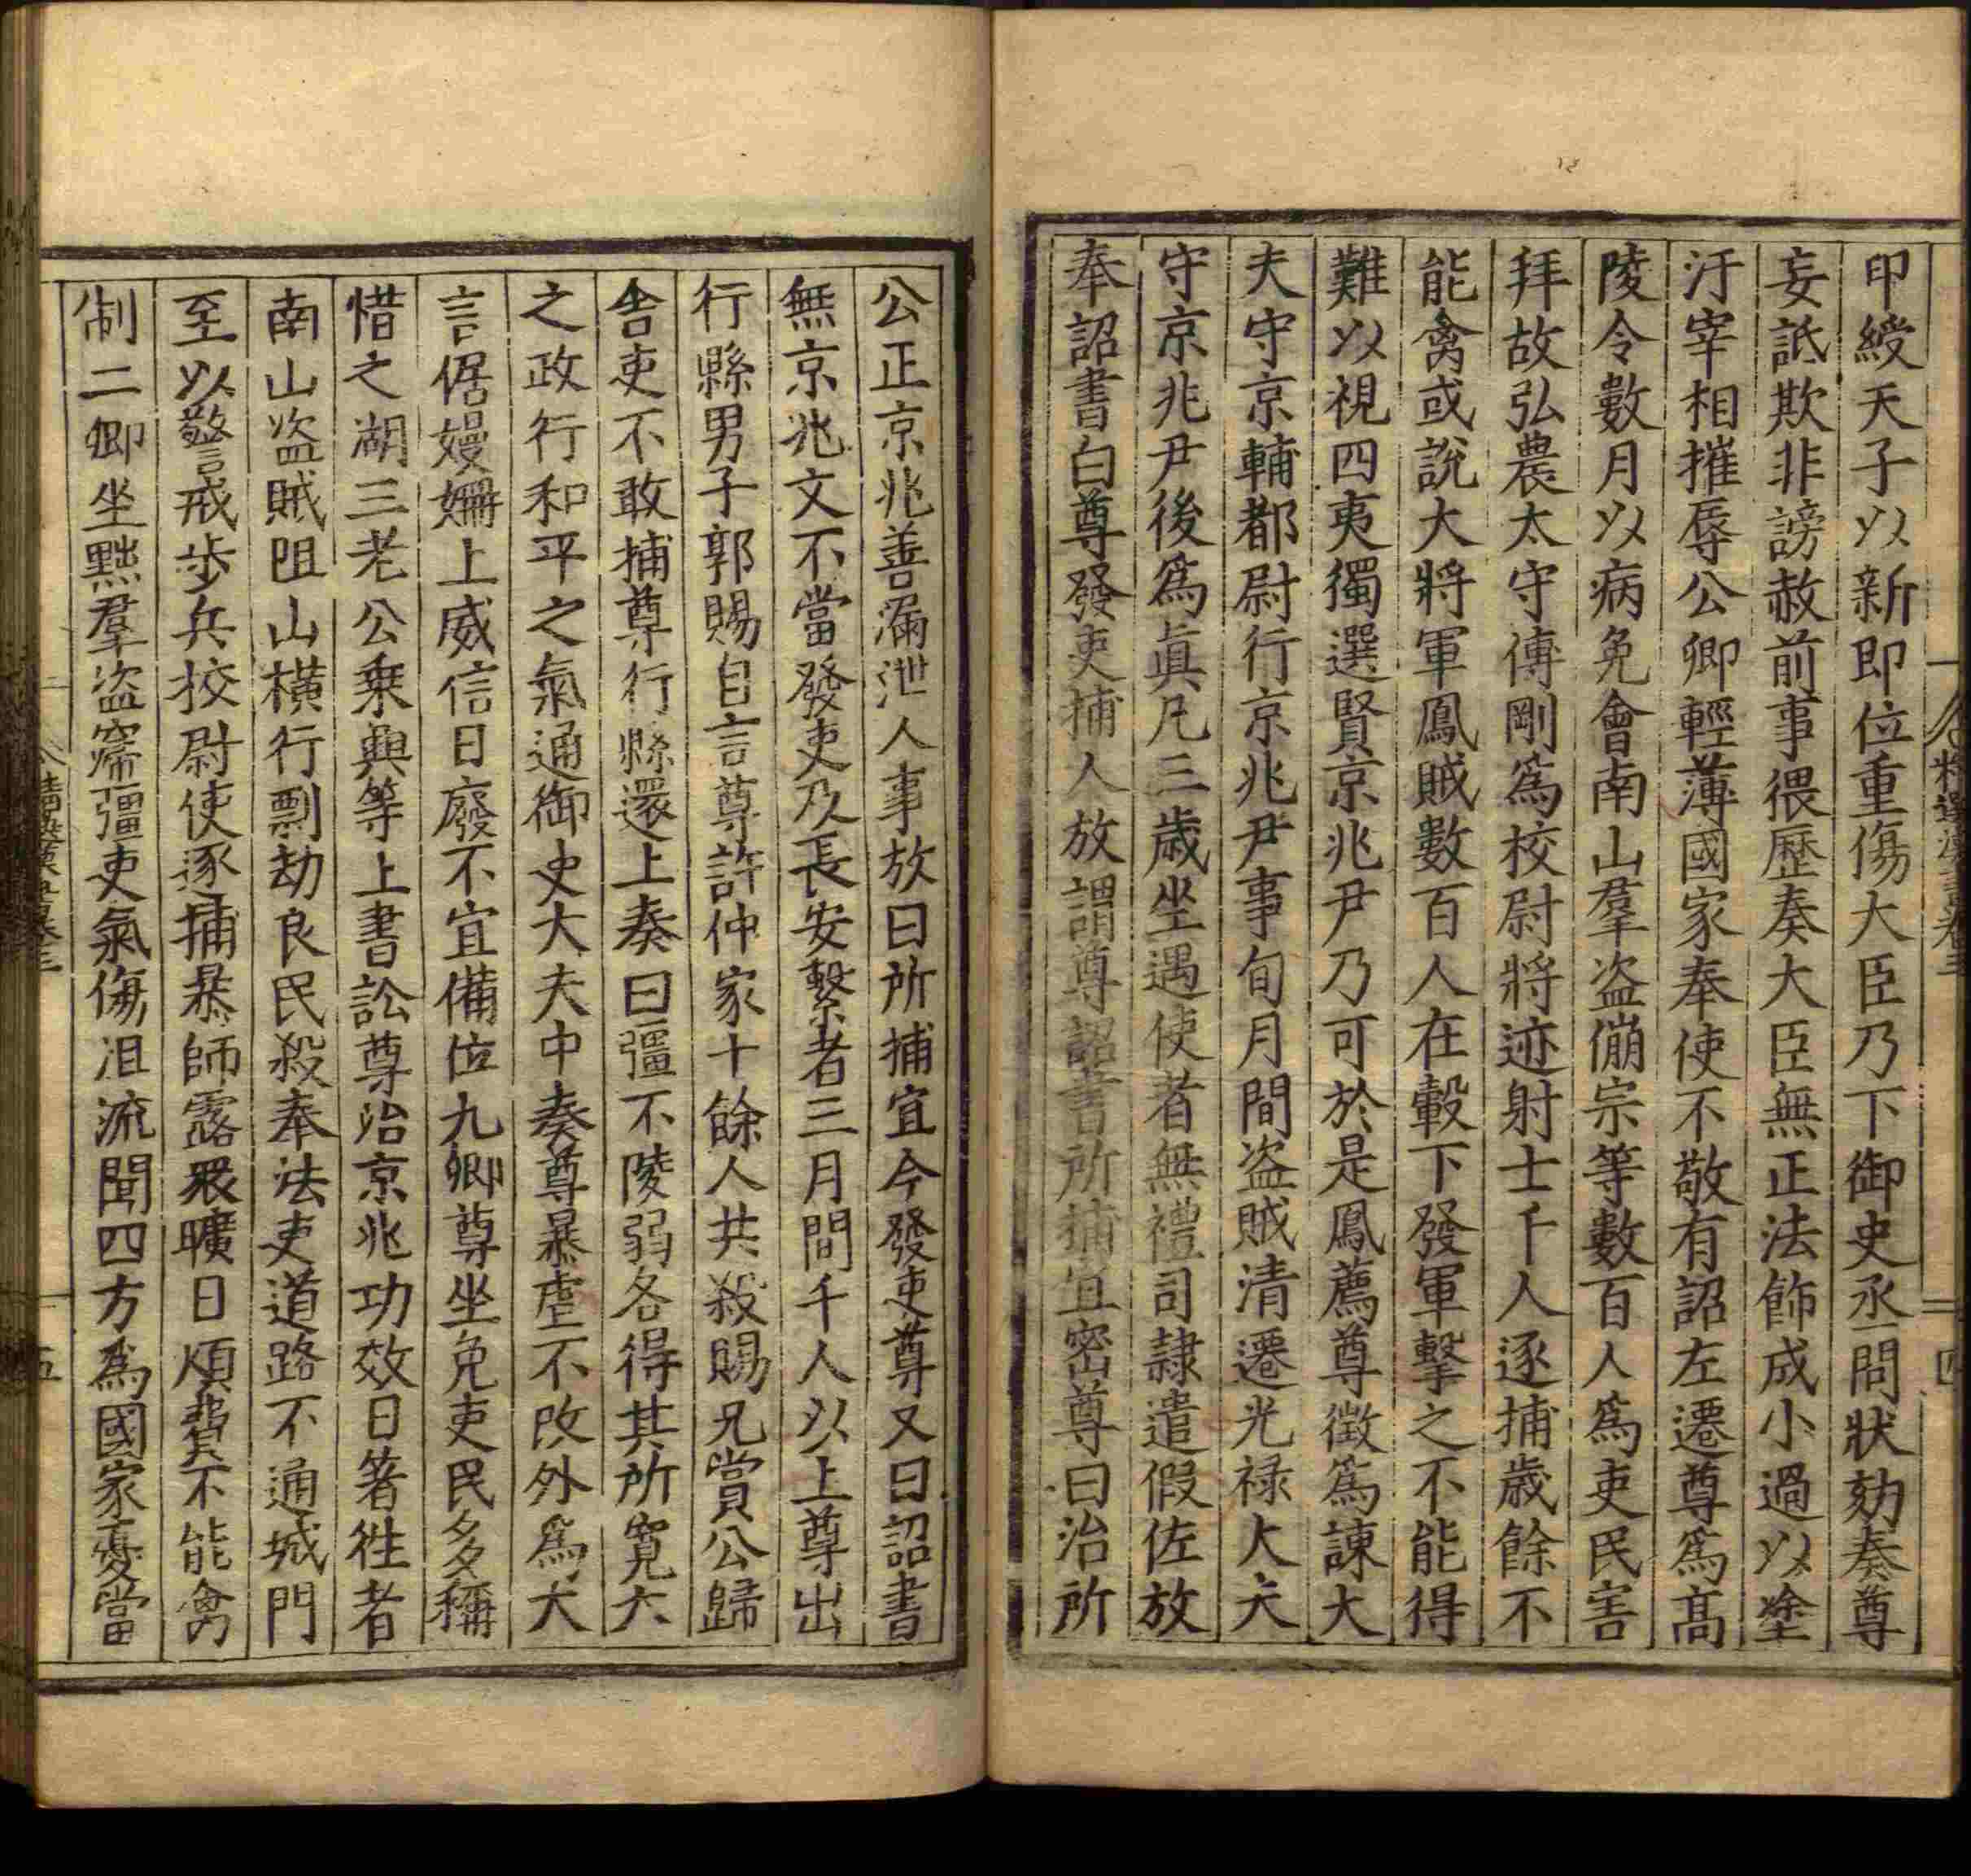 印綬天子以新即位重傷大臣乃下御史丞問狀劾奏尊
妄詆欺非謗赦前事猥歷奏大臣無正法飾成小過以塗
汙宰相摧辱公卿輕薄國家奉使不敬有詔左遷尊爲高
陵令數月以病免會南山羣盜傰宗等數百人爲吏民害
拜故弘農太守傳剛爲校尉將迹射士千人逐捕歲餘不
能禽或說大將軍鳳賊數百人在轂下發軍擊之不能得
難以視四夷獨選賢京兆尹乃可於是鳳薦尊徵爲諫大
夫守京輔都尉行京兆尹事旬月間盜賊清遷光祿大夫
守京兆尹後爲眞凡三歲坐遇使者無禮司隷遣假佐放
奉詔書白尊發吏捕人放謂尊詔書所捕宜密尊曰治所
公正京兆善漏泄人事放曰所捕宜今發吏尊又曰詔書
無京兆文不當發吏及長安繫者三月間千人以上尊出
行縣男子郭賜自言尊許仲家十餘人共殺賜兄賞公歸
舍吏不敢捕尊行縣還上奏曰彊不陵弱各得其所寬大
之政行和平之氣通御史大夫中奏尊暴虐不改外爲大
言倨嫚姍上威信日廢不宜備位九卿尊坐免吏民多稱
惜之湖三老公乗興等上書訟尊治京兆功效日著徃者
南山盜賊阻山橫行剽劫良民殺奉法吏道路不通城門
至以警戒步兵校尉使逐捕暴師露衆曠日煩費不能禽
制二卿坐黜羣盜寖彊吏氣傷沮流聞四方爲國家憂當